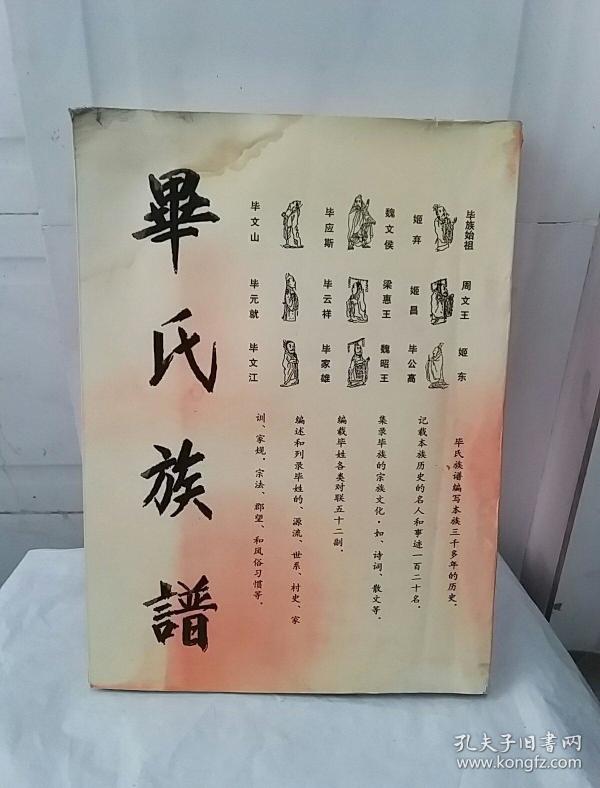 畢氏族譜
毕族始祖
姬弃
魏文侯
毕应斯
毕文山
周文王
姬昌
梁惠王
毕云祥
毕元就
姬东
毕公高
魏昭王
毕家雄
毕文江
毕氏族谱编写本族三千多年的历史、
记载本族历史的名人和事迹一百二十名．
集录毕族的宗族文化·如、诗词、散文等．
编载毕姓各类对联五十二副．
编述和列录毕姓的、源流、世系、村史、家
训、家规．宗法、郡望、和风俗习惯等．
孔夫子旧书网
www.kongfz.com